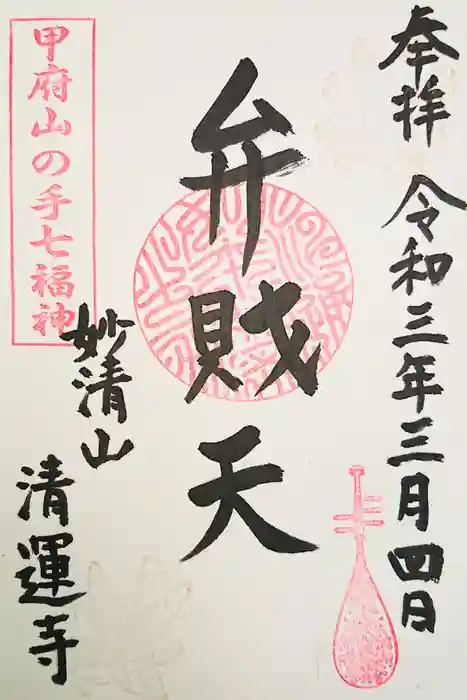 奉拝 令和三年三月四日
弁賊天
妙清山
清運寺
甲府山の手七福神